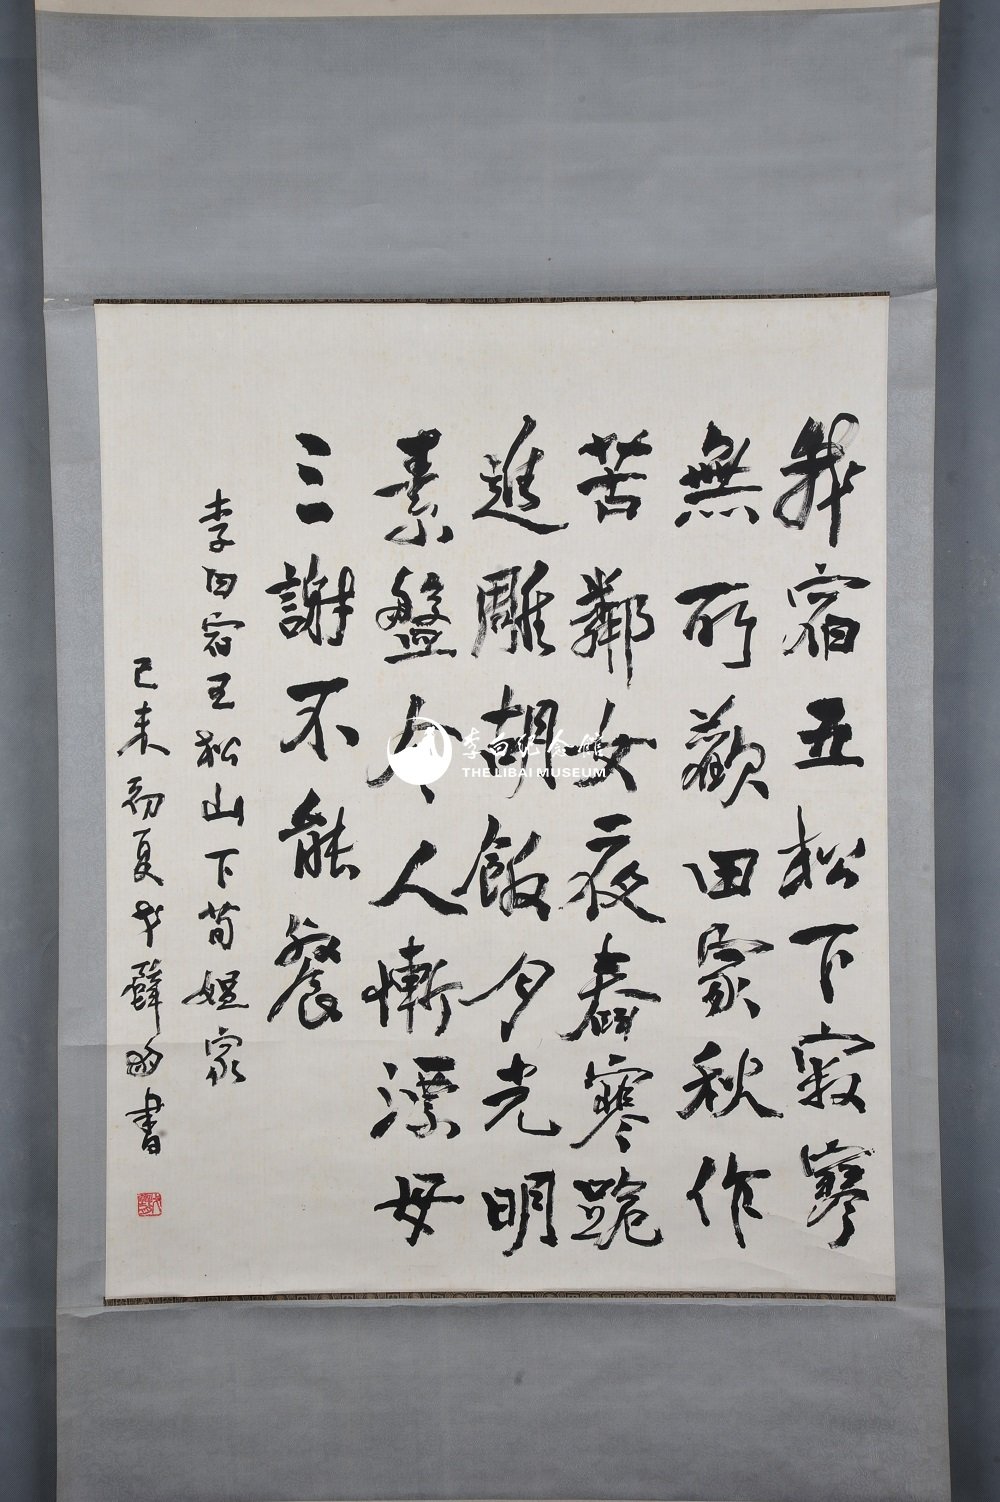 我宿五松下寂寥
無所歡田家秋作
苦鄰女夜舂寒跪
進雕胡飯月光明
素盤令人慚漂母
三謝不能餐
李白宿五松山下荀媼家
己未初夏戈壁舟書
李白纪念馆
THE LIBAI MUSEUM